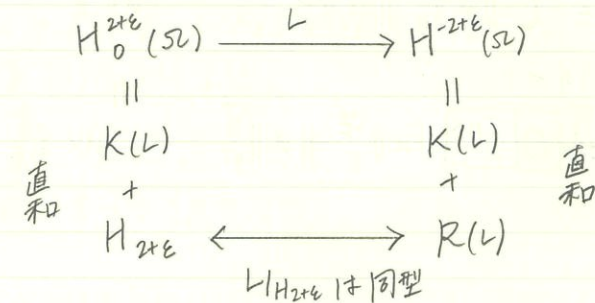 H₀²⁺ᵋ(Ω) ⟶ᴸ H⁻²⁺ᵋ(Ω)
|| ||
K(L) K(L)
直和 + + 直和
H₂₊ε ⟷ R(L)
L|H₂₊ε は同型